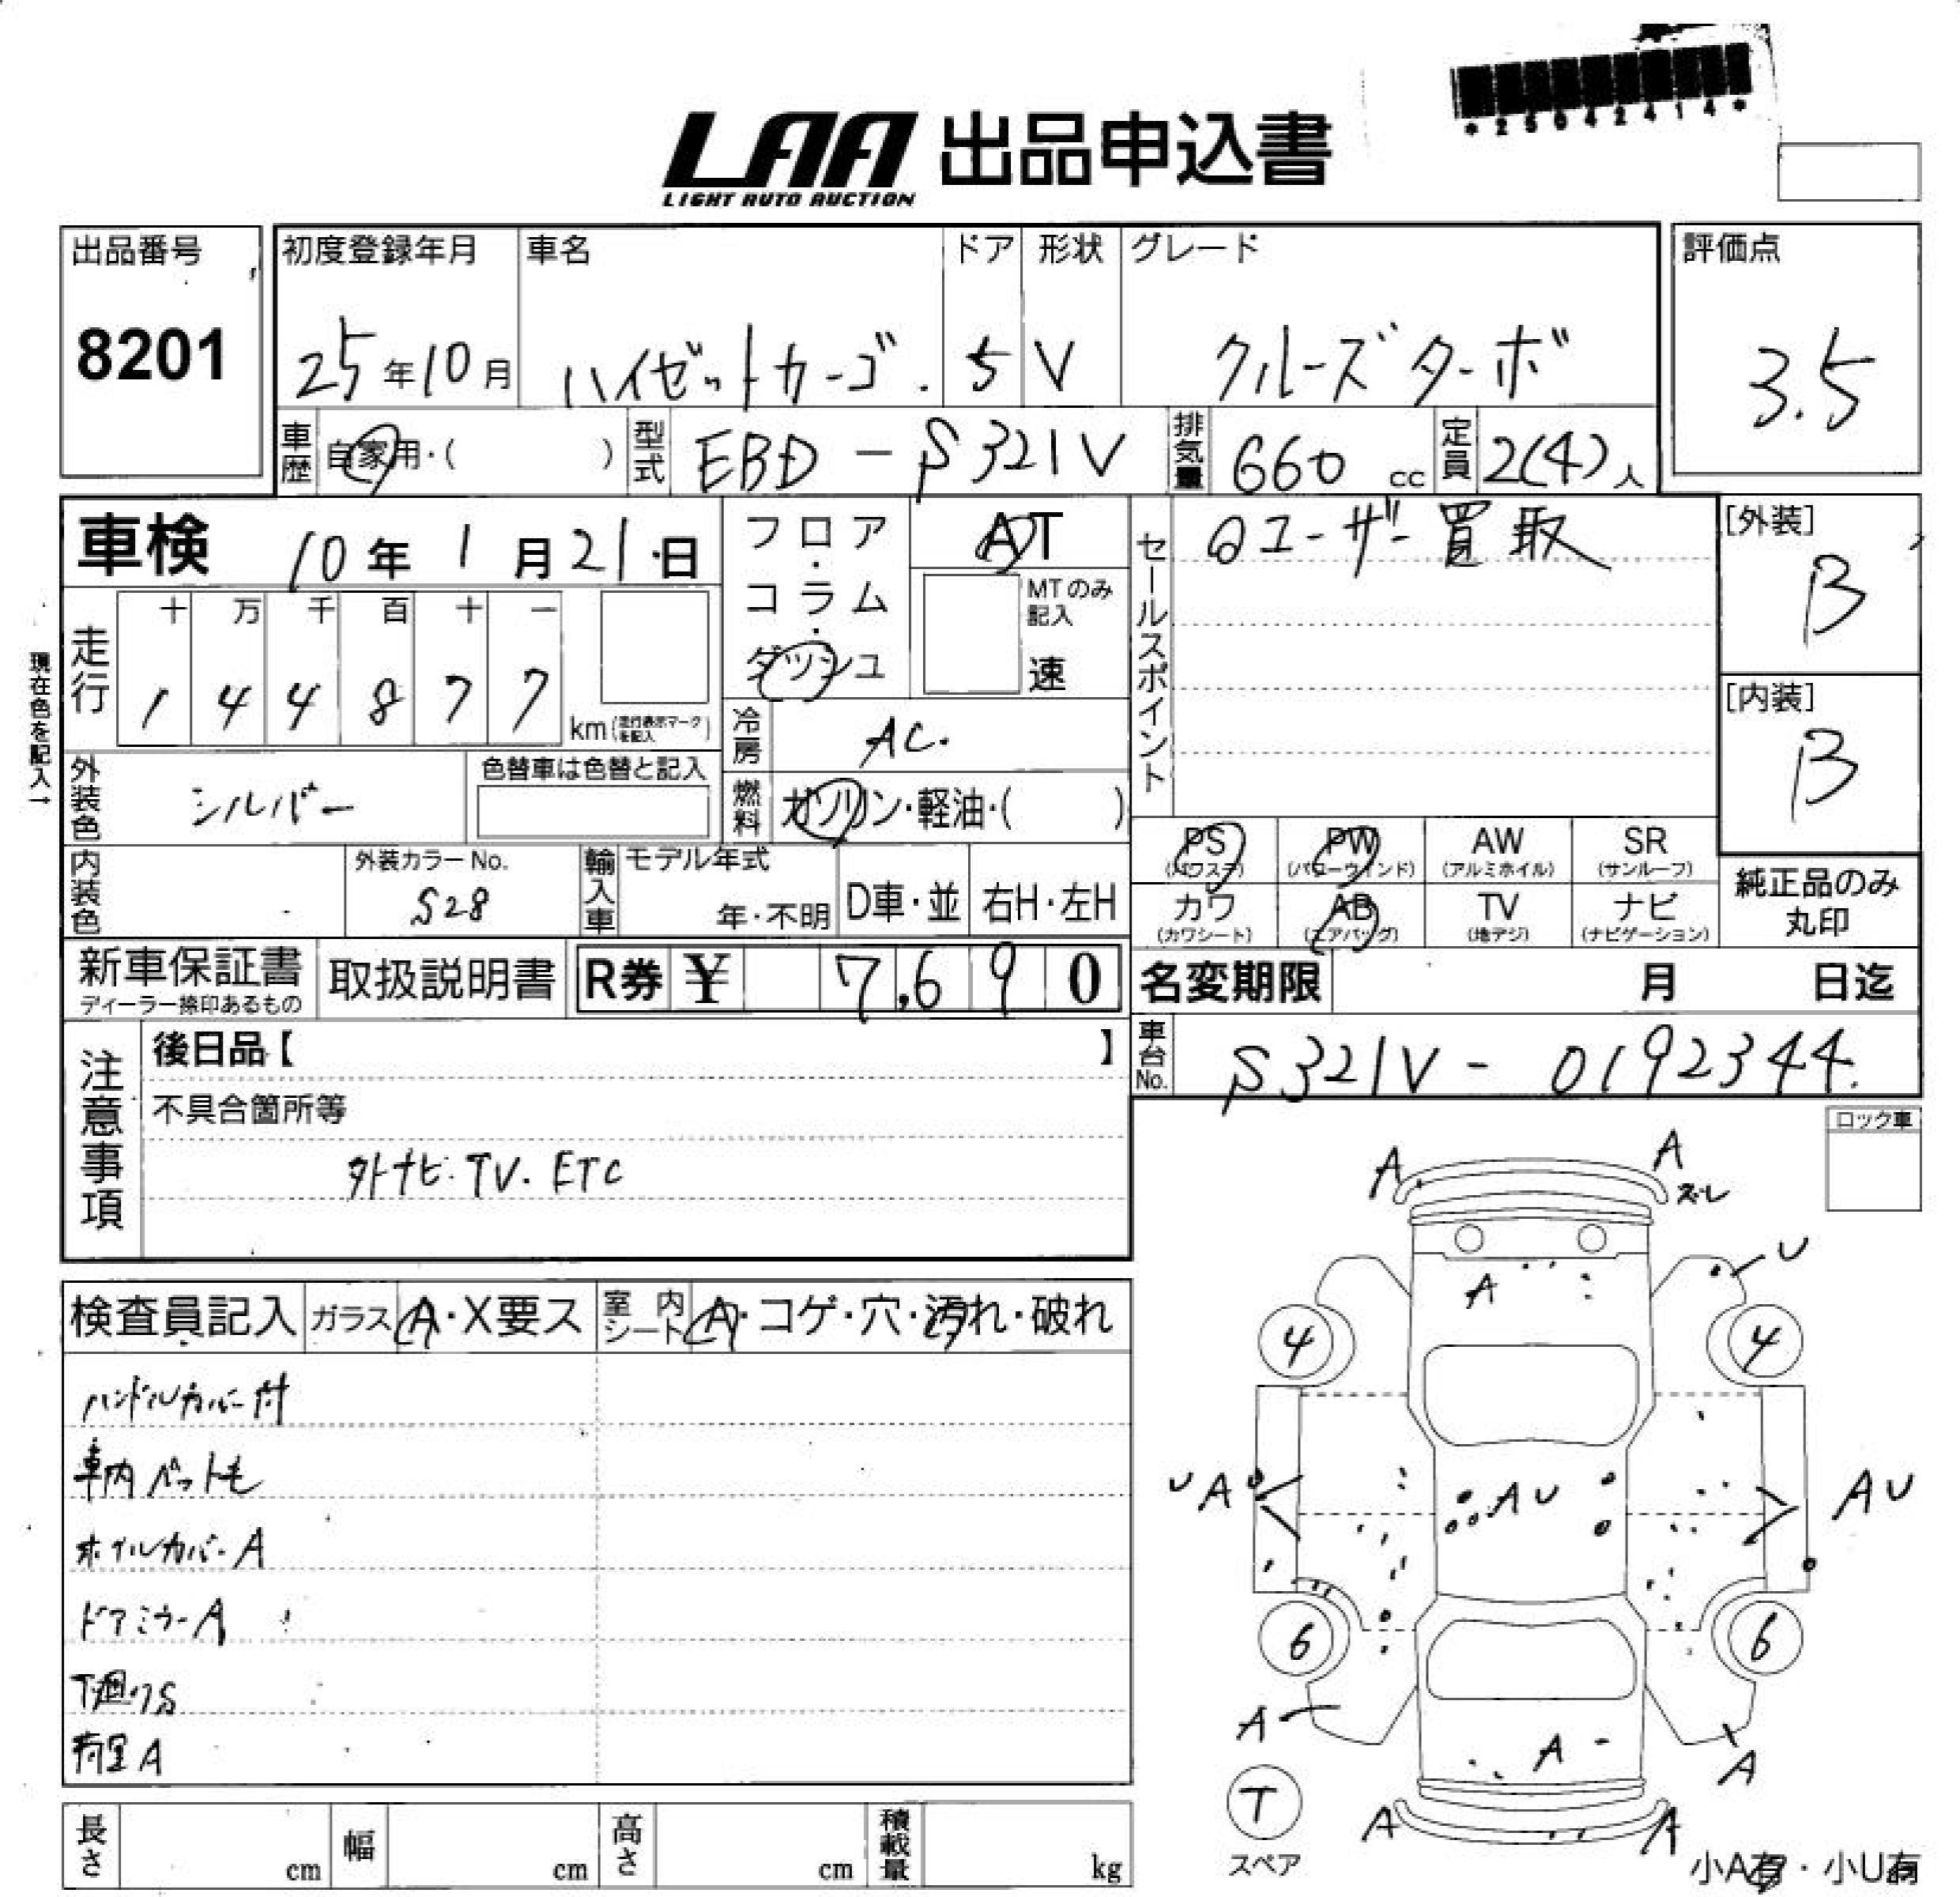 *25042414*
LAA 出品申込書
LIGHT AUTO AUCTION
出品番号
8201
初度登録年月
25年10月
車名
ハイゼットカーゴ.
ドア
5
形状
V
グレード
クルーズターボ
評価点
3.5
車歴 自家用・( )
型式 EBD-S321V
排気量 660 cc
定員 2(4)人
車検 10年1月21日
フロア・コラム・ダッシュ
AT
MTのみ記入
速
セールスポイント
ユーザー買取
[外装]
B
[内装]
B
現在色を記入→
走行
十 万 千 百 十 一
1 4 4 8 7 7
km(走行表示マークを記入)
冷房 AC.
燃料 ガソリン・軽油・( )
外装色 シルバー
色替車は色替と記入
内装色
外装カラーNo.
S28
輸入車
モデル年式
年・不明
D車・並
右H・左H
PS (パワステ)
PW (パワーウィンド)
AW (アルミホイル)
SR (サンルーフ)
カワ (カワシート)
AB (エアバッグ)
TV (地デジ)
ナビ (ナビゲーション)
純正品のみ
丸印
新車保証書
ディーラー捺印あるもの
取扱説明書
R券 ¥ 7,690
名変期限 月 日迄
車台No. S321V-0192344.
注意事項
後日品【 】
不具合箇所等
外ナビ.TV.ETC
ロック車
検査員記入
ガラス A・X要ス
室内シート A・コゲ・穴・汚れ・破れ
ハンドルカバー付
車内ペット毛
ホイルカバーA
ドアミラーA
下廻りS
荷室A
A A
ズレ
U
A
4 4
UA AU AU
6 6
A A A
T
スペア
A A
小A有・小U有
長さ cm
幅 cm
高さ cm
積載量 kg